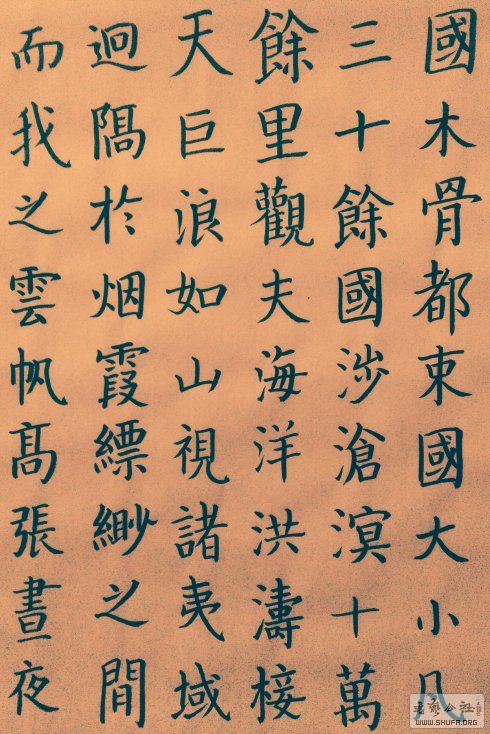 國木骨都束國大小凡
三十餘國涉滄溟十萬
餘里觀夫海洋洪濤接
天巨浪如山視諸夷域
逈隔於烟霞縹緲之間
而我之雲帆髙張晝夜
WWW.SHUFA.ORG